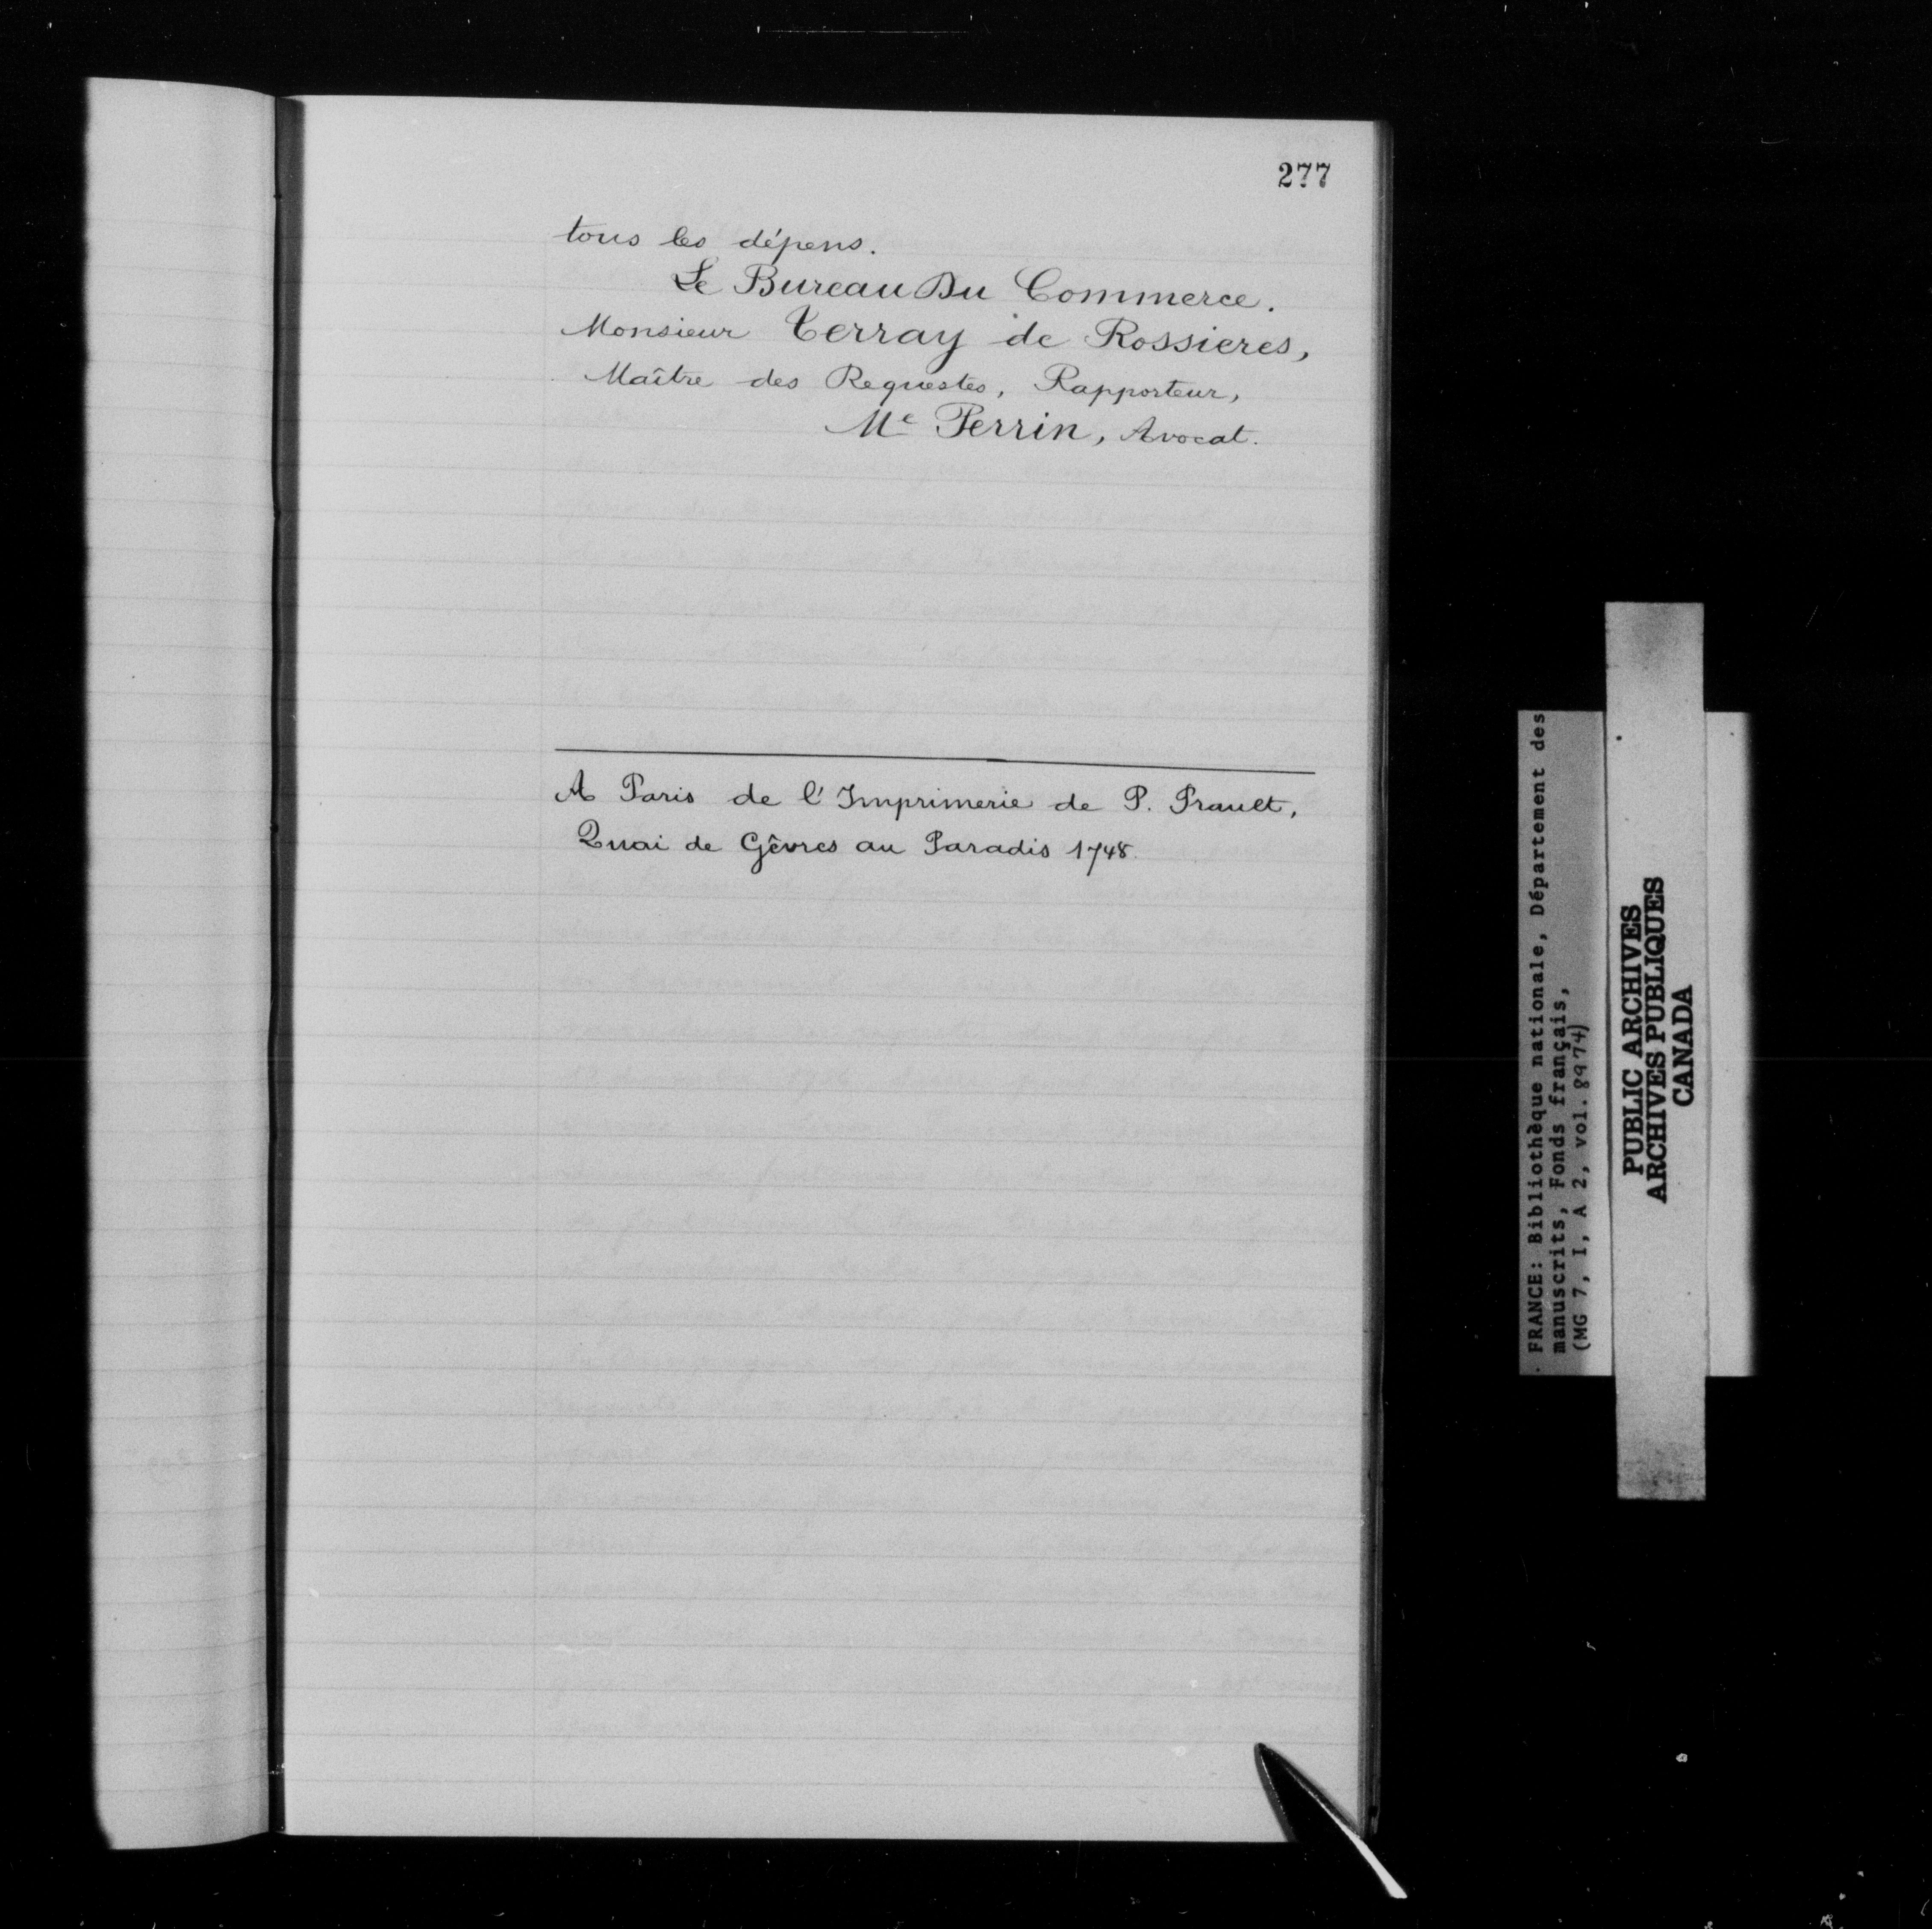 277
tous les dépens.
Le Bureau Du Commerce.
Monsieur Terray de Rossieres,
Maître des Requestes, Rapporteur,
Me Perrin, Avocat.
A Paris de l'Imprimerie de P. Prault,
Quai de Gêvres au Paradis 1748.
FRANCE: Bibliothèque nationale, Département des
manuscrits, Fonds français,
(MG 7, I, A 2, vol. 8974)
PUBLIC ARCHIVES
ARCHIVES PUBLIQUES
CANADA